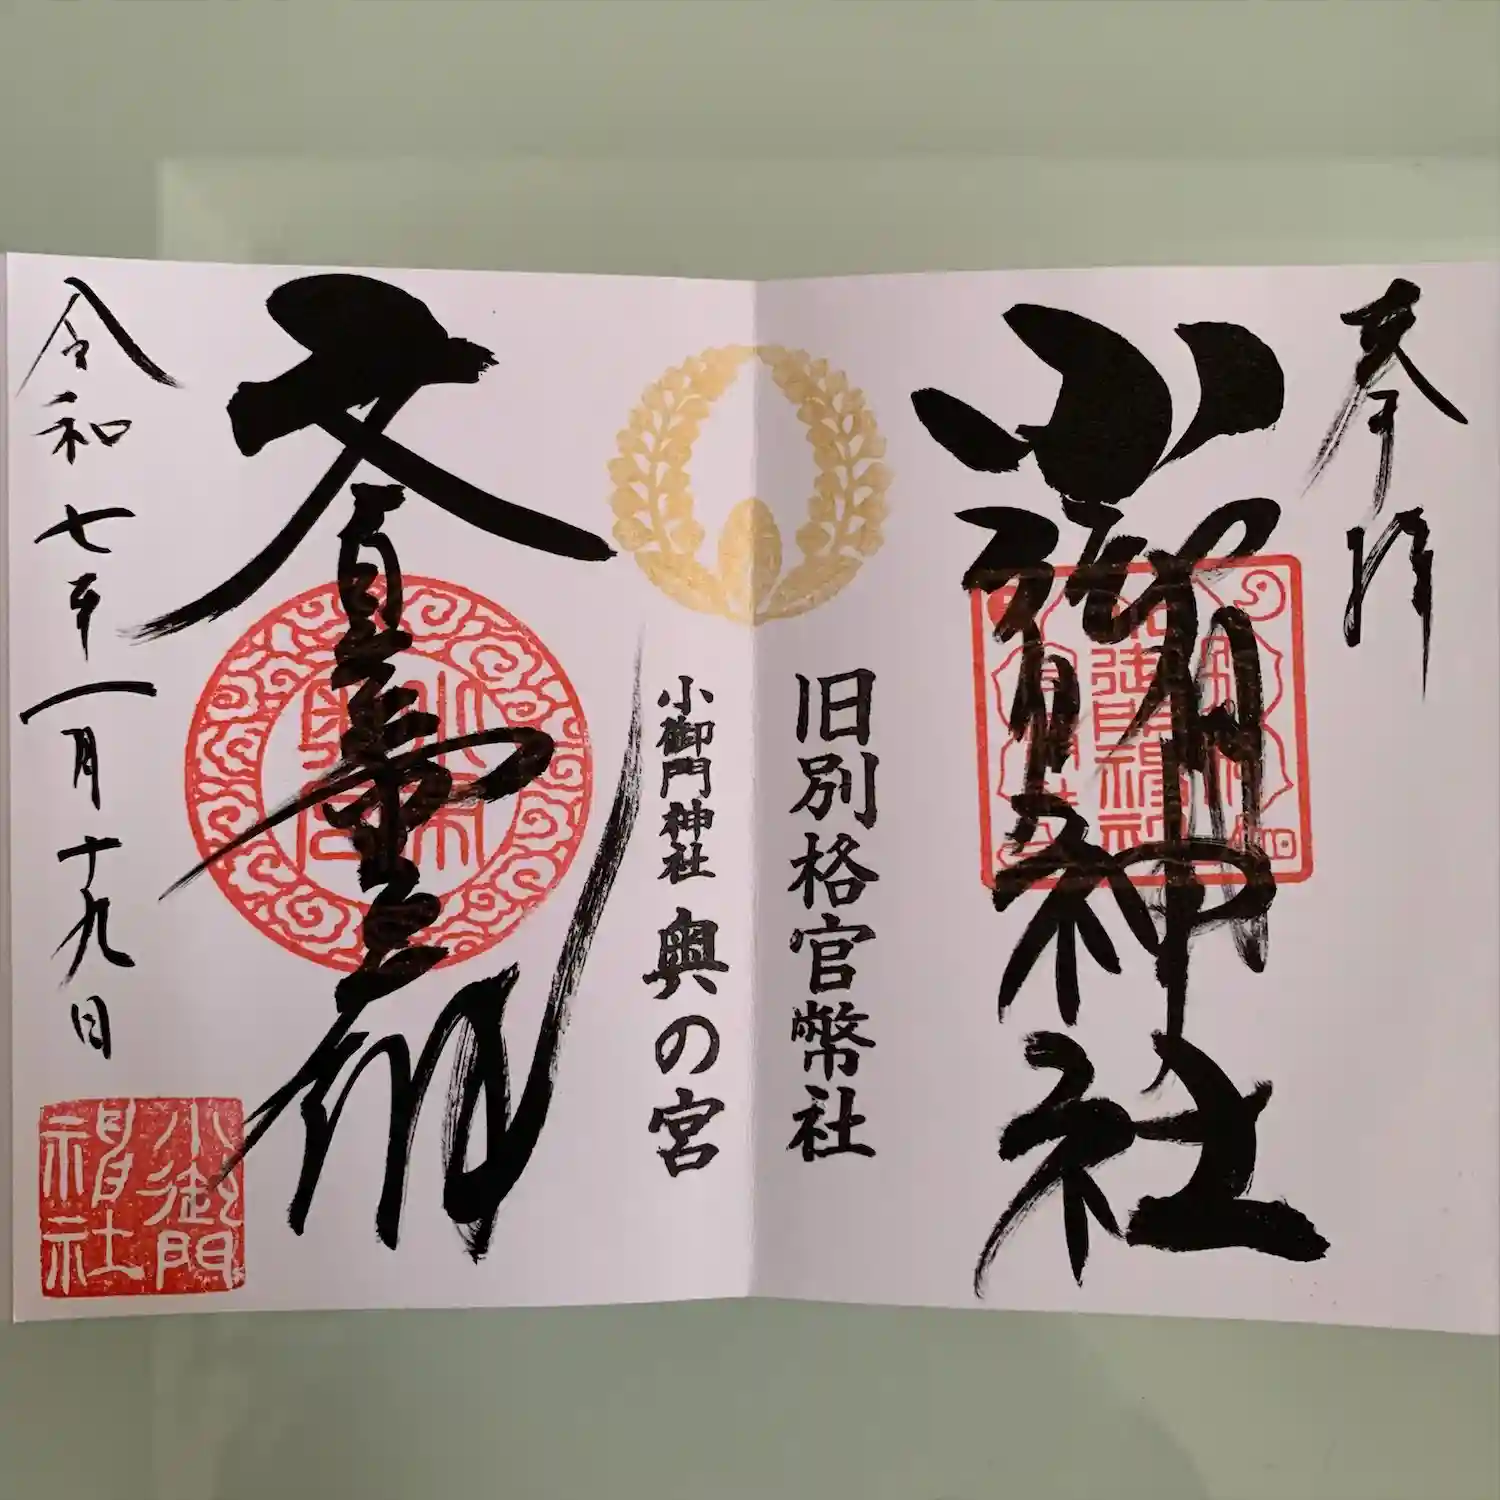 奉拝
小御門神社
旧別格官幣社
小御門神社 奥の宮
令和七年一月十九日
小御門
神社